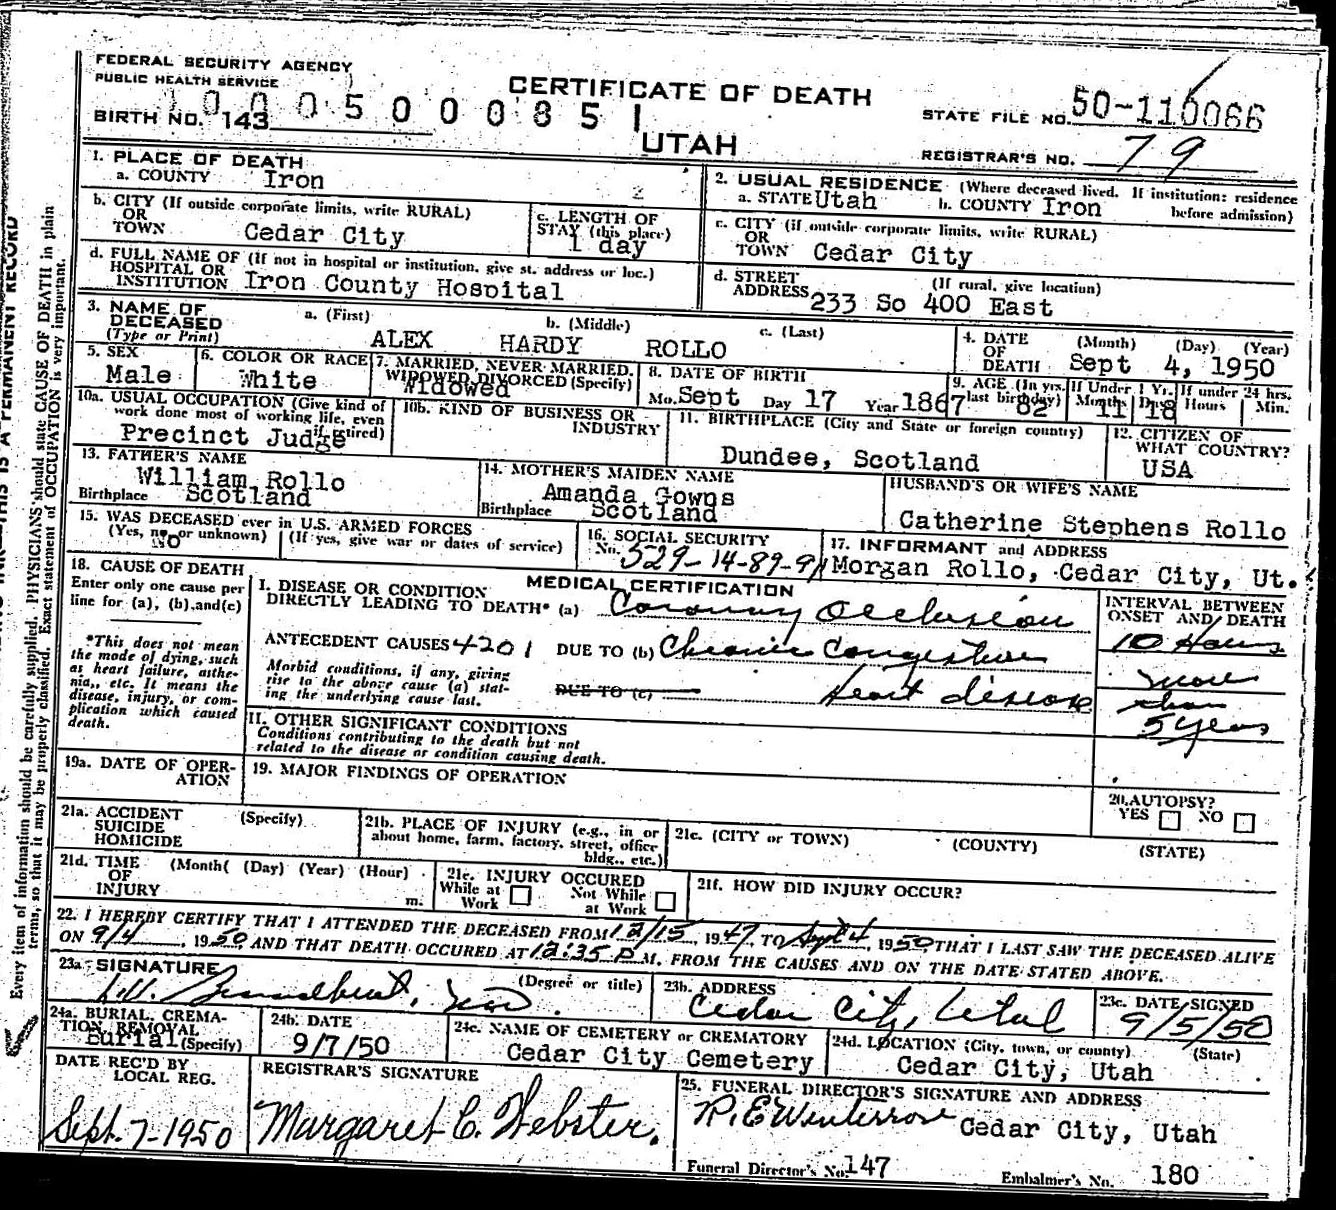 FEDERAL SECURITY AGENCY
PUBLIC HEALTH SERVICE
CERTIFICATE OF DEATH
UTAH
BIRTH NO. 143
1 0 0 0 5 0 0 0 8 5 1
STATE FILE NO. 50-110066
REGISTRAR'S NO. 79
1. PLACE OF DEATH
a. COUNTY Iron
2
2. USUAL RESIDENCE (Where deceased lived. If institution: residence before admission)
a. STATE Utah b. COUNTY Iron
b. CITY (If outside corporate limits, write RURAL)
OR
TOWN Cedar City
c. LENGTH OF
STAY (this place)
1 day
c. CITY (if outside corporate limits, write RURAL)
OR
TOWN Cedar City
d. FULL NAME OF (If not in hospital or institution, give st. address or loc.)
HOSPITAL OR
INSTITUTION Iron County Hospital
d. STREET (If rural, give location)
ADDRESS 233 So 400 East
3. NAME OF
DECEASED
(Type or Print)
a. (First) b. (Middle) c. (Last)
ALEX HARDY ROLLO
4. DATE
OF
DEATH
(Month) (Day) (Year)
Sept 4, 1950
5. SEX
Male
6. COLOR OR RACE
White
7. MARRIED, NEVER MARRIED,
WIDOWED, DIVORCED (Specify)
Widowed
8. DATE OF BIRTH
Mo. Sept Day 17 Year 1867
9. AGE (In yrs. last birthday) 82
If Under 1 Yr. Months 11 Days 18
If under 24 hrs. Hours Min.
10a. USUAL OCCUPATION (Give kind of
work done most of working life, even
if retired)
Precinct Judge
10b. KIND OF BUSINESS OR
INDUSTRY
11. BIRTHPLACE (City and State or foreign country)
Dundee, Scotland
12. CITIZEN OF
WHAT COUNTRY?
USA
13. FATHER'S NAME
William Rollo
Birthplace Scotland
14. MOTHER'S MAIDEN NAME
Amanda Gowns
Birthplace Scotland
HUSBAND'S OR WIFE'S NAME
Catherine Stephens Rollo
15. WAS DECEASED ever in U.S. ARMED FORCES
(Yes, no, or unknown) (If yes, give war or dates of service)
No
16. SOCIAL SECURITY
No. 529-14-89-91
17. INFORMANT and ADDRESS
Morgan Rollo, Cedar City, Ut.
18. CAUSE OF DEATH
Enter only one cause per
line for (a), (b), and (c)
*This does not mean
the mode of dying, such
as heart failure, asthe-
nia, etc. It means the
disease, injury, or com-
plication which caused
death.
MEDICAL CERTIFICATION
I. DISEASE OR CONDITION
DIRECTLY LEADING TO DEATH* (a) Coronary Occlusion
ANTECEDENT CAUSES 4201 DUE TO (b) Chronic Congestive
Morbid conditions, if any, giving
rise to the above cause (a) stat-
ing the underlying cause last.
DUE TO (c) heart disease
II. OTHER SIGNIFICANT CONDITIONS
Conditions contributing to the death but not
related to the disease or condition causing death.
INTERVAL BETWEEN
ONSET AND DEATH
10 Hours
more
than
5 years
19a. DATE OF OPER-
ATION
19. MAJOR FINDINGS OF OPERATION
20. AUTOPSY?
YES NO
21a. ACCIDENT (Specify)
SUICIDE
HOMICIDE
21b. PLACE OF INJURY (e.g., in or
about home, farm, factory, street, office
bldg., etc.)
21c. (CITY or TOWN) (COUNTY) (STATE)
21d. TIME (Month( (Day) (Year) (Hour)
OF
INJURY m.
21e. INJURY OCCURED
While at Work Not While at Work
21f. HOW DID INJURY OCCUR?
22. I HEREBY CERTIFY THAT I ATTENDED THE DECEASED FROM 12/15, 1947, TO Sept 4, 1950 THAT I LAST SAW THE DECEASED ALIVE
ON 9/4, 1950 AND THAT DEATH OCCURED AT 12:35 P M, FROM THE CAUSES AND ON THE DATE STATED ABOVE.
23a. SIGNATURE (Degree or title)
23b. ADDRESS
Cedar City, Utah
23c. DATE SIGNED
9/5/50
24a. BURIAL, CREMA-
TION, REMOVAL
(Specify)
Burial
24b. DATE
9/7/50
24c. NAME OF CEMETERY or CREMATORY
Cedar City Cemetery
24d. LOCATION (City, town, or county) (State)
Cedar City, Utah
DATE REC'D BY
LOCAL REG.
Sept. 7-1950
REGISTRAR'S SIGNATURE
Margaret C. Webster.
25. FUNERAL DIRECTOR'S SIGNATURE AND ADDRESS
Cedar City, Utah
Funeral Director's No. 147 Embalmer's No. 180
Every item of information should be carefully supplied. PHYSICIANS should state CAUSE OF DEATH in plain
terms, so that it may be properly classified. Exact statement of OCCUPATION is very important.
THIS IS A PERMANENT RECORD